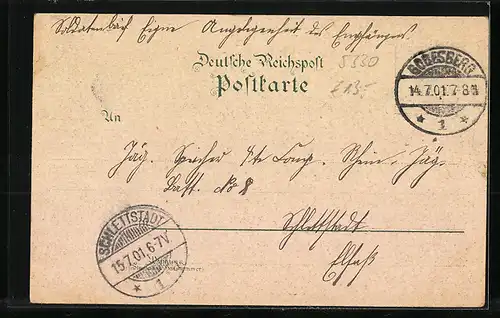 Soldatenbrief Eigene Angelegenheit des Empfängers
Deutsche Reichspost
Postkarte
5330
£ 135-
GODESBERG
14.7.01.7-8N
* 1 *
An
Jäg. Speicher Comp. Rhein. Jäg.
Batt. No 8
Schlettstadt
Elsaß
SCHLETTSTADT
15.7.01.6-7V.
* 1